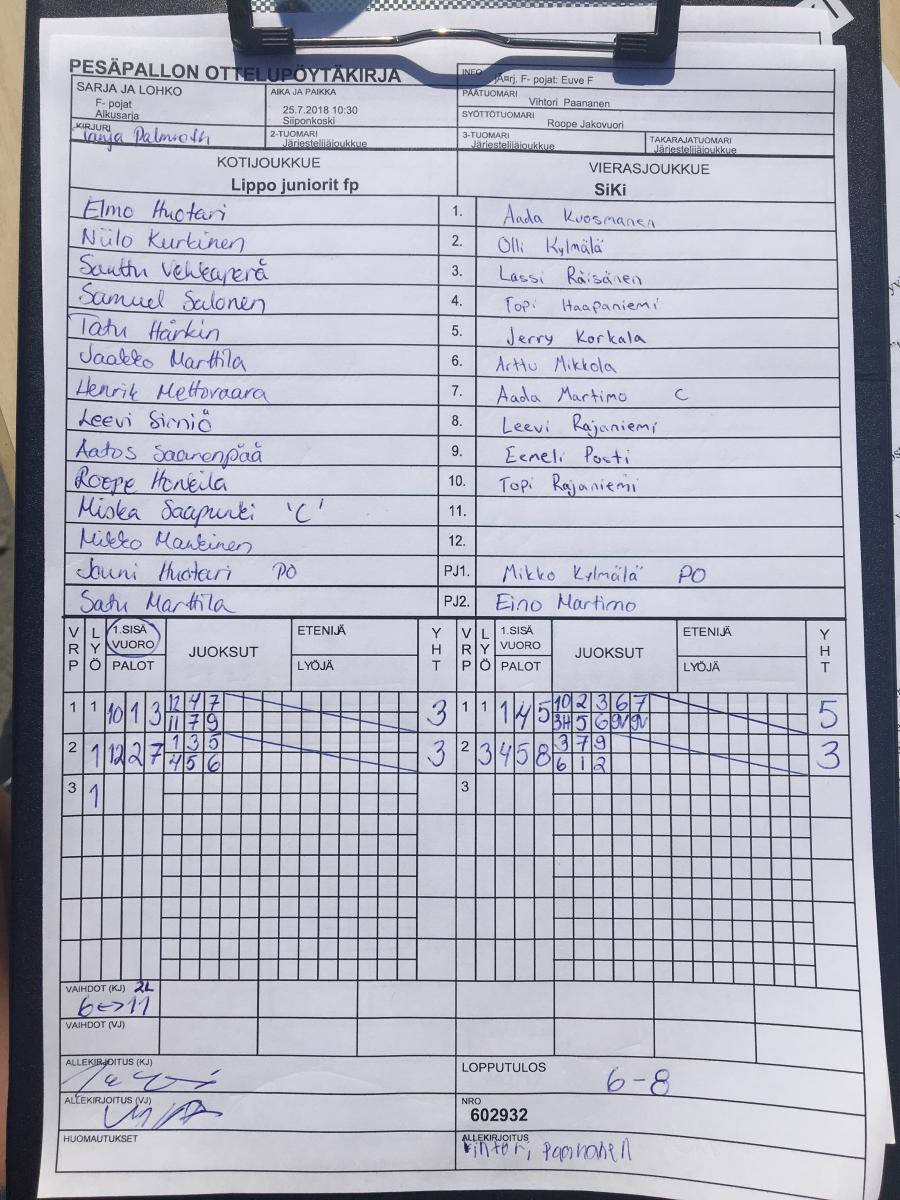 PESÄPALLON OTTELUPÖYTÄKIRJA
INFO Järj. F- pojat: Euve F
SARJA JA LOHKO
F- pojat
Alkusarja
AIKA JA PAIKKA
25.7.2018 10:30
Siiponkoski
PÄÄTUOMARI
Vihtori Paananen
SYÖTTÖTUOMARI
Roope Jakovuori
KIRJURI
Tanja Palmroth
2-TUOMARI
Järjestelijäjoukkue
3-TUOMARI
Järjestelijäjoukkue
TAKARAJATUOMARI
Järjestelijäjoukkue
KOTIJOUKKUE
Lippo juniorit fp
VIERASJOUKKUE
SiKi
Elmo Huotari 1. Aada Kuosmanen
Niilo Kurkinen 2. Olli Kylmälä
Santtu Vehkaperä 3. Lassi Räisänen
Samuel Salonen 4. Topi Haapaniemi
Tatu Härkin 5. Jerry Korkala
Jaakko Marttila 6. Arttu Mikkola
Henrik Mettovaara 7. Aada Martimo C
Leevi Sirniö 8. Leevi Rajaniemi
Aatos Saarenpää 9. Eemeli Posti
Roope Honkila 10. Topi Rajaniemi
Miska Saapunki 'C' 11.
Mikko Mankinen 12.
Jouni Huotari PO PJ1. Mikko Kylmälä PO
Satu Marttila PJ2. Eino Martimo
VRP LYÖ 1.SISÄ VUORO PALOT JUOKSUT ETENIJÄ LYÖJÄ YHT VRP LYÖ 1.SISÄ VUORO PALOT JUOKSUT ETENIJÄ LYÖJÄ YHT
1 1 10 1 3 12 4 7 3 1 1 1 4 5 10 2 3 6 7 5
11 7 9 3H 5 6 9V 9V
2 1 12 2 7 1 3 5 3 2 3 4 5 8 3 7 9 3
4 5 6 6 1 2
3 1 3
VAIHDOT (KJ) 2L
6<->11
VAIHDOT (VJ)
ALLEKIRJOITUS (KJ)
LOPPUTULOS
6-8
ALLEKIRJOITUS (VJ)
NRO
602932
HUOMAUTUKSET
ALLEKIRJOITUS
Vihtori Paananen